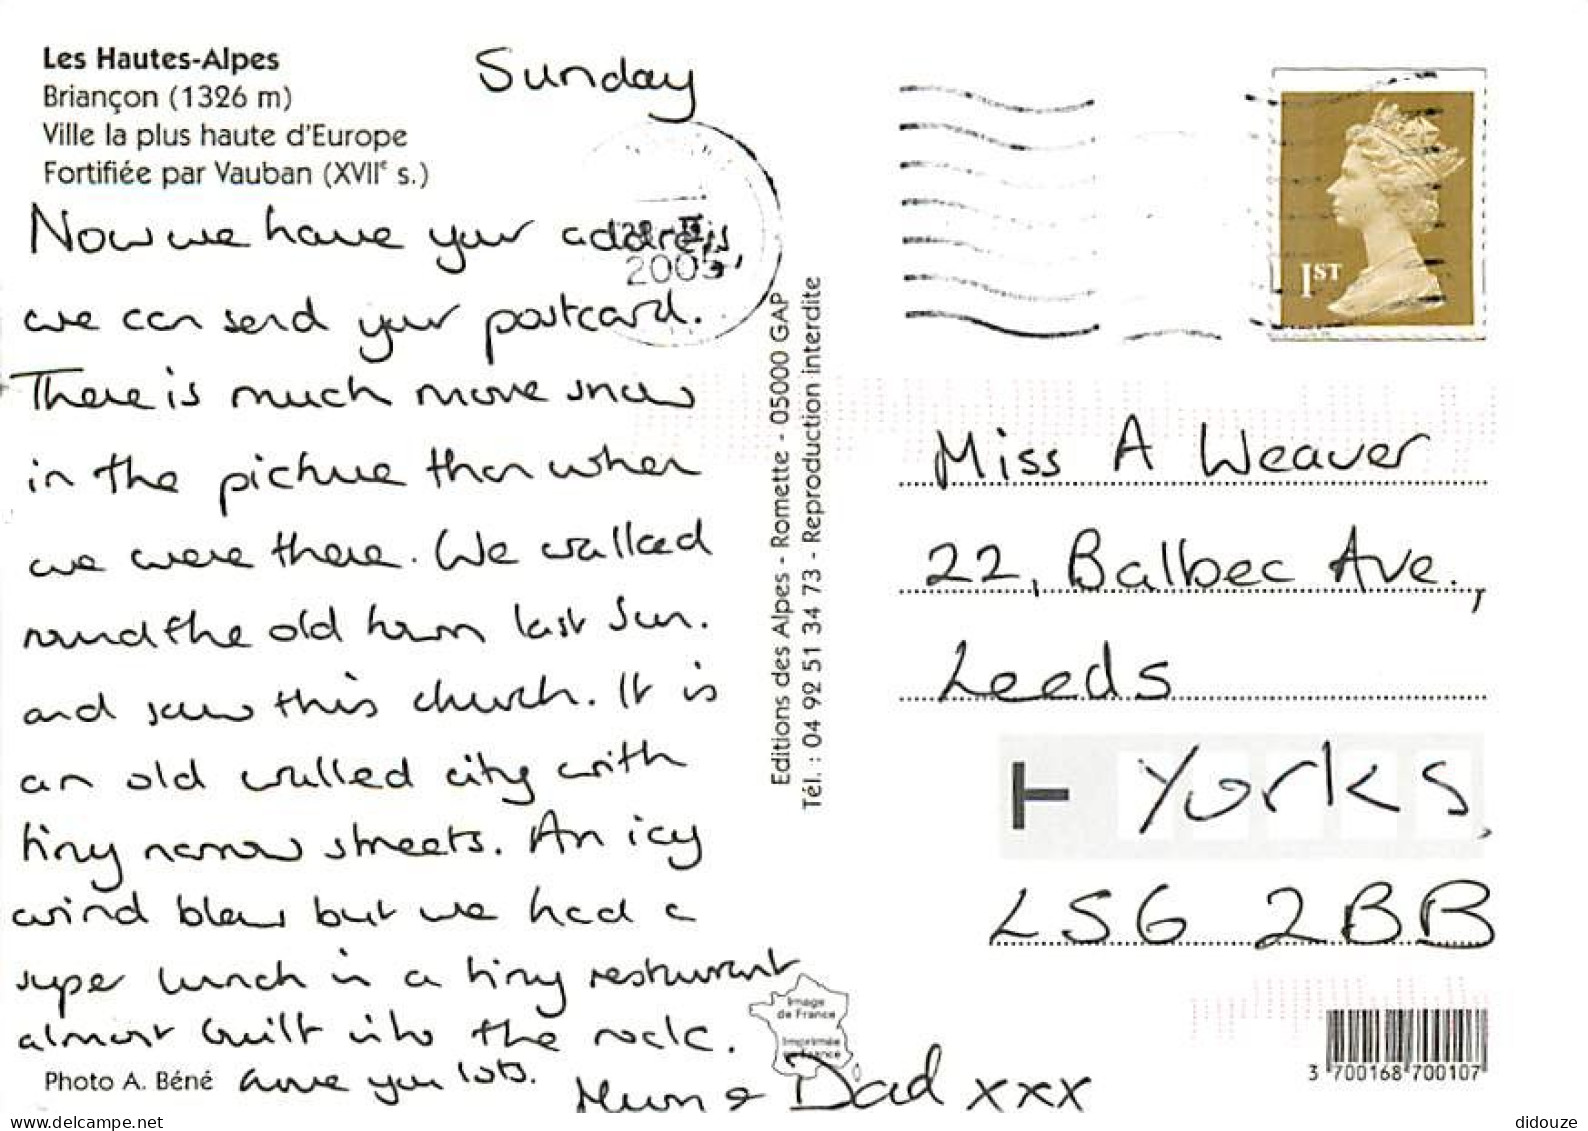 Les Hautes-Alpes
Briançon (1326 m)
Ville la plus haute d'Europe
Fortifiée par Vauban (XVIIe s.)
Sunday
Now we have your address,
we can send your postcard.
There is much more snow
in the picture than when
we were there. We walked
round the old town last Sun.
and saw this church. It is
an old walled city with
tiny narrow streets. An icy
wind blew but we had a
super lunch in a tiny restaurant
almost built into the rock.
Love you lots.
Mum & Dad xxx
Photo A. Béné
2005
Editions des Alpes - Romette - 05000 GAP
Tél. : 04 92 51 34 73 - Reproduction interdite
Image
de France
Imprimée
en France
1ST
Miss A Weaver
22, Balbec Ave.,
Leeds
T Yorks,
LS6 2BB
3 700168 700107
www.delcampe.net
didouze